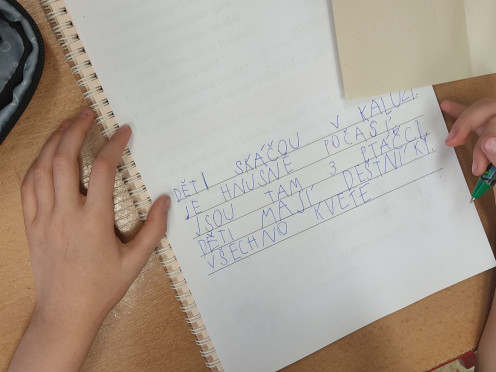 DĚTI SKÁČOU V KALUŽI.
JE HNUSNÉ POČASÍ
JSOU TAM 3 PTÁČCI
DĚTI MAJÍ DEŠTNÍKY.
VŠECHNO KVETE